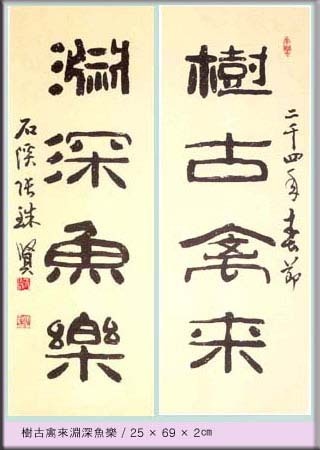 樹古禽来
二千四年春節
淵深魚樂
石溪張珠賢
樹古禽來淵深魚樂 / 25 × 69 × 2㎝